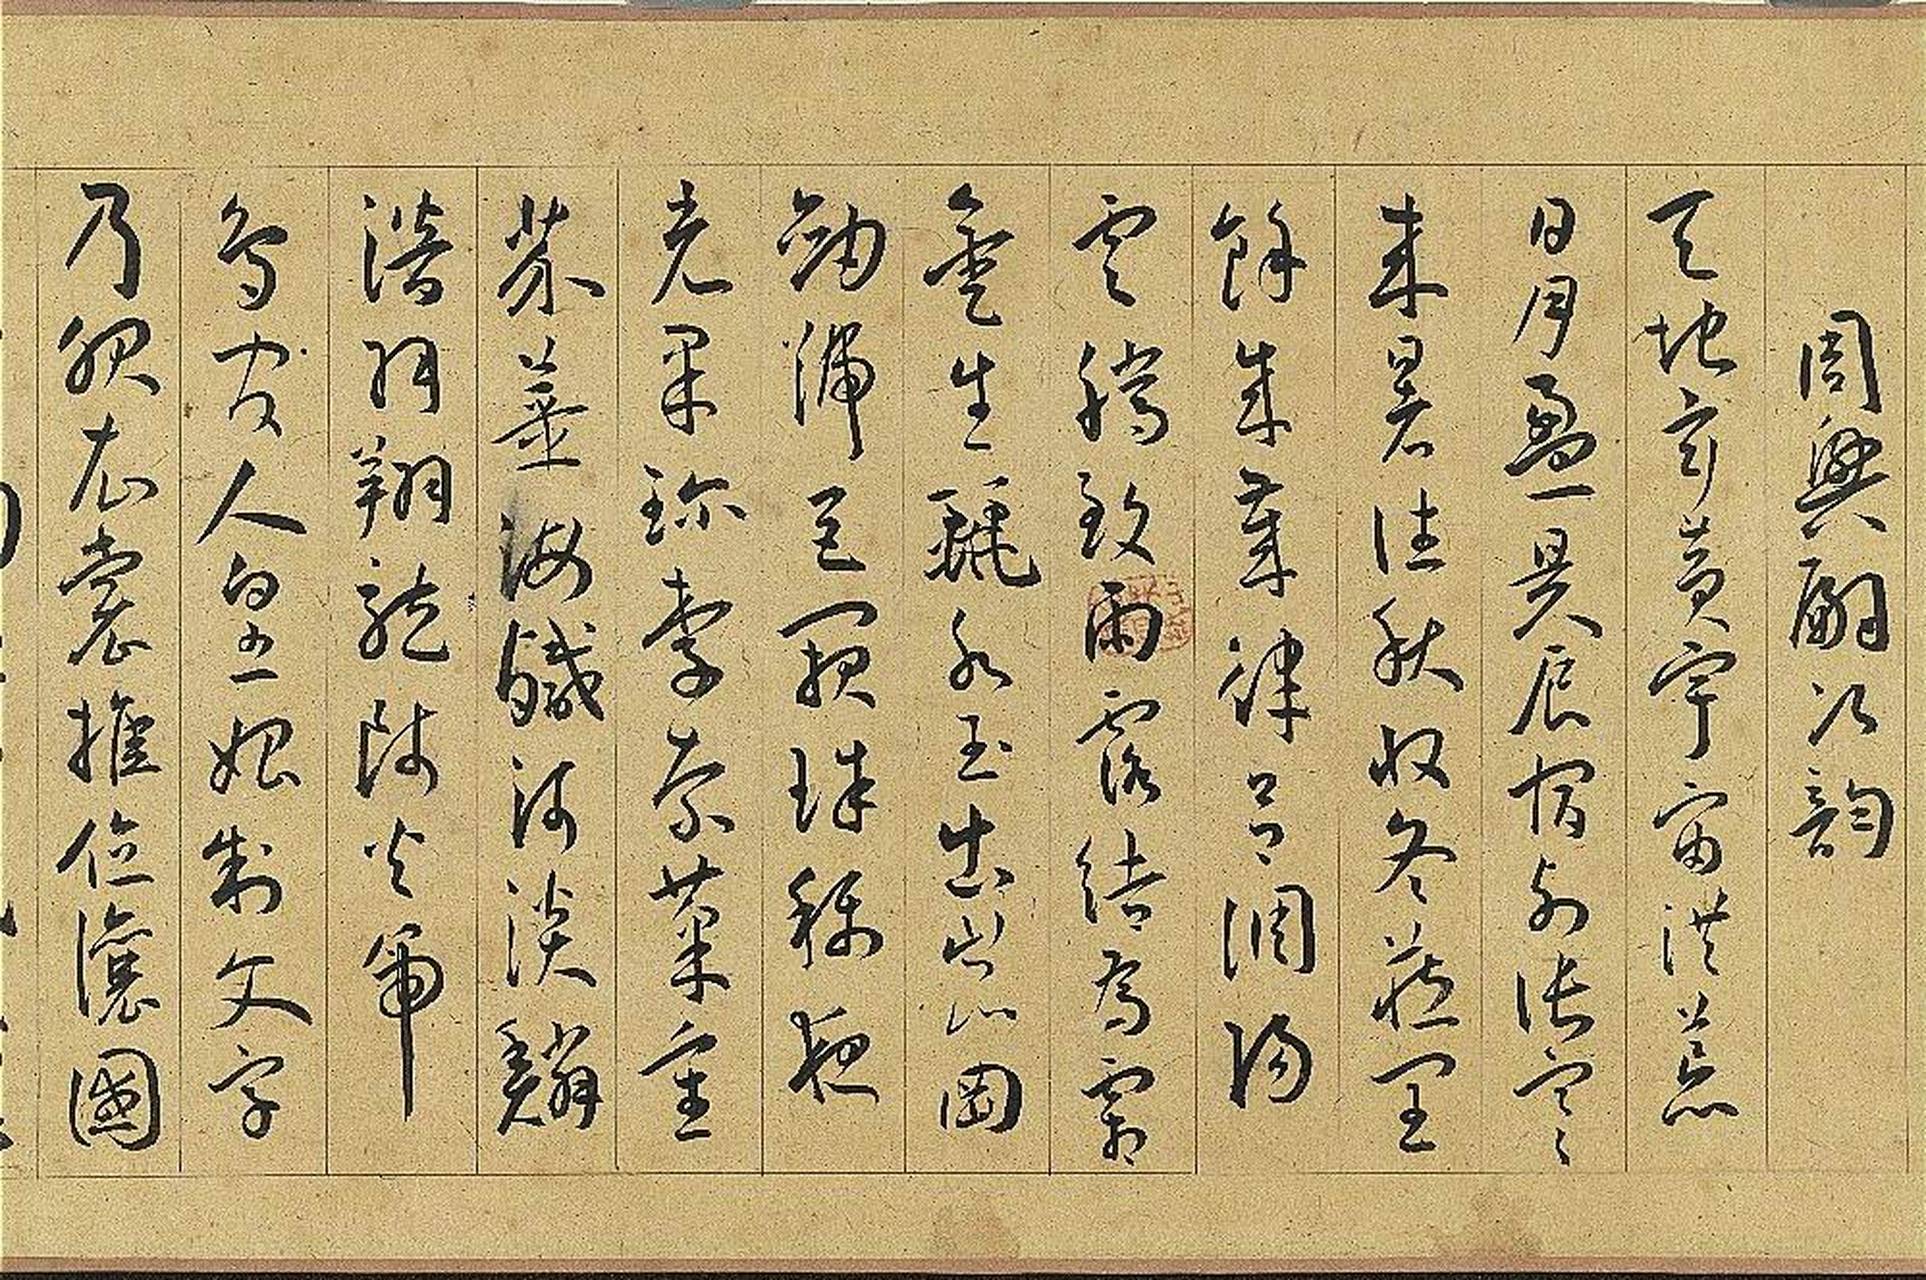 周興嗣次韻
天地玄黃宇宙洪荒
日月盈昃辰宿列張寒
來暑往秋收冬藏閏
餘成歲律呂調陽
雲騰致雨露結為霜
金生麗水玉出崑岡
劍號巨闕珠稱夜
光果珍李柰菜重
芥薑海鹹河淡鱗
潛羽翔龍師火帝
鳥官人皇始制文字
乃服衣裳推位讓國